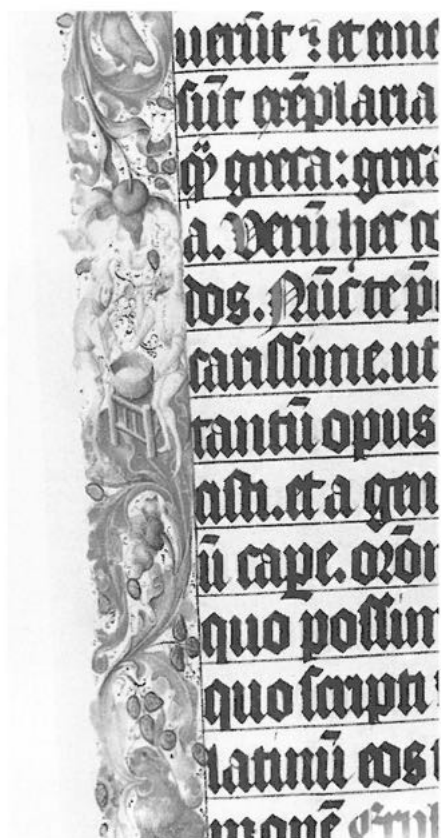 uerūt ? et eme
sūt exēplaria
q̄ȝ greca: greca
a. Verū hec co
dos. Nūc te p̄
carissime. ut
tantū opus
cisti. et a gen
ū cape. orōn
quo possim
quo scripti
latinū eos t
monē.